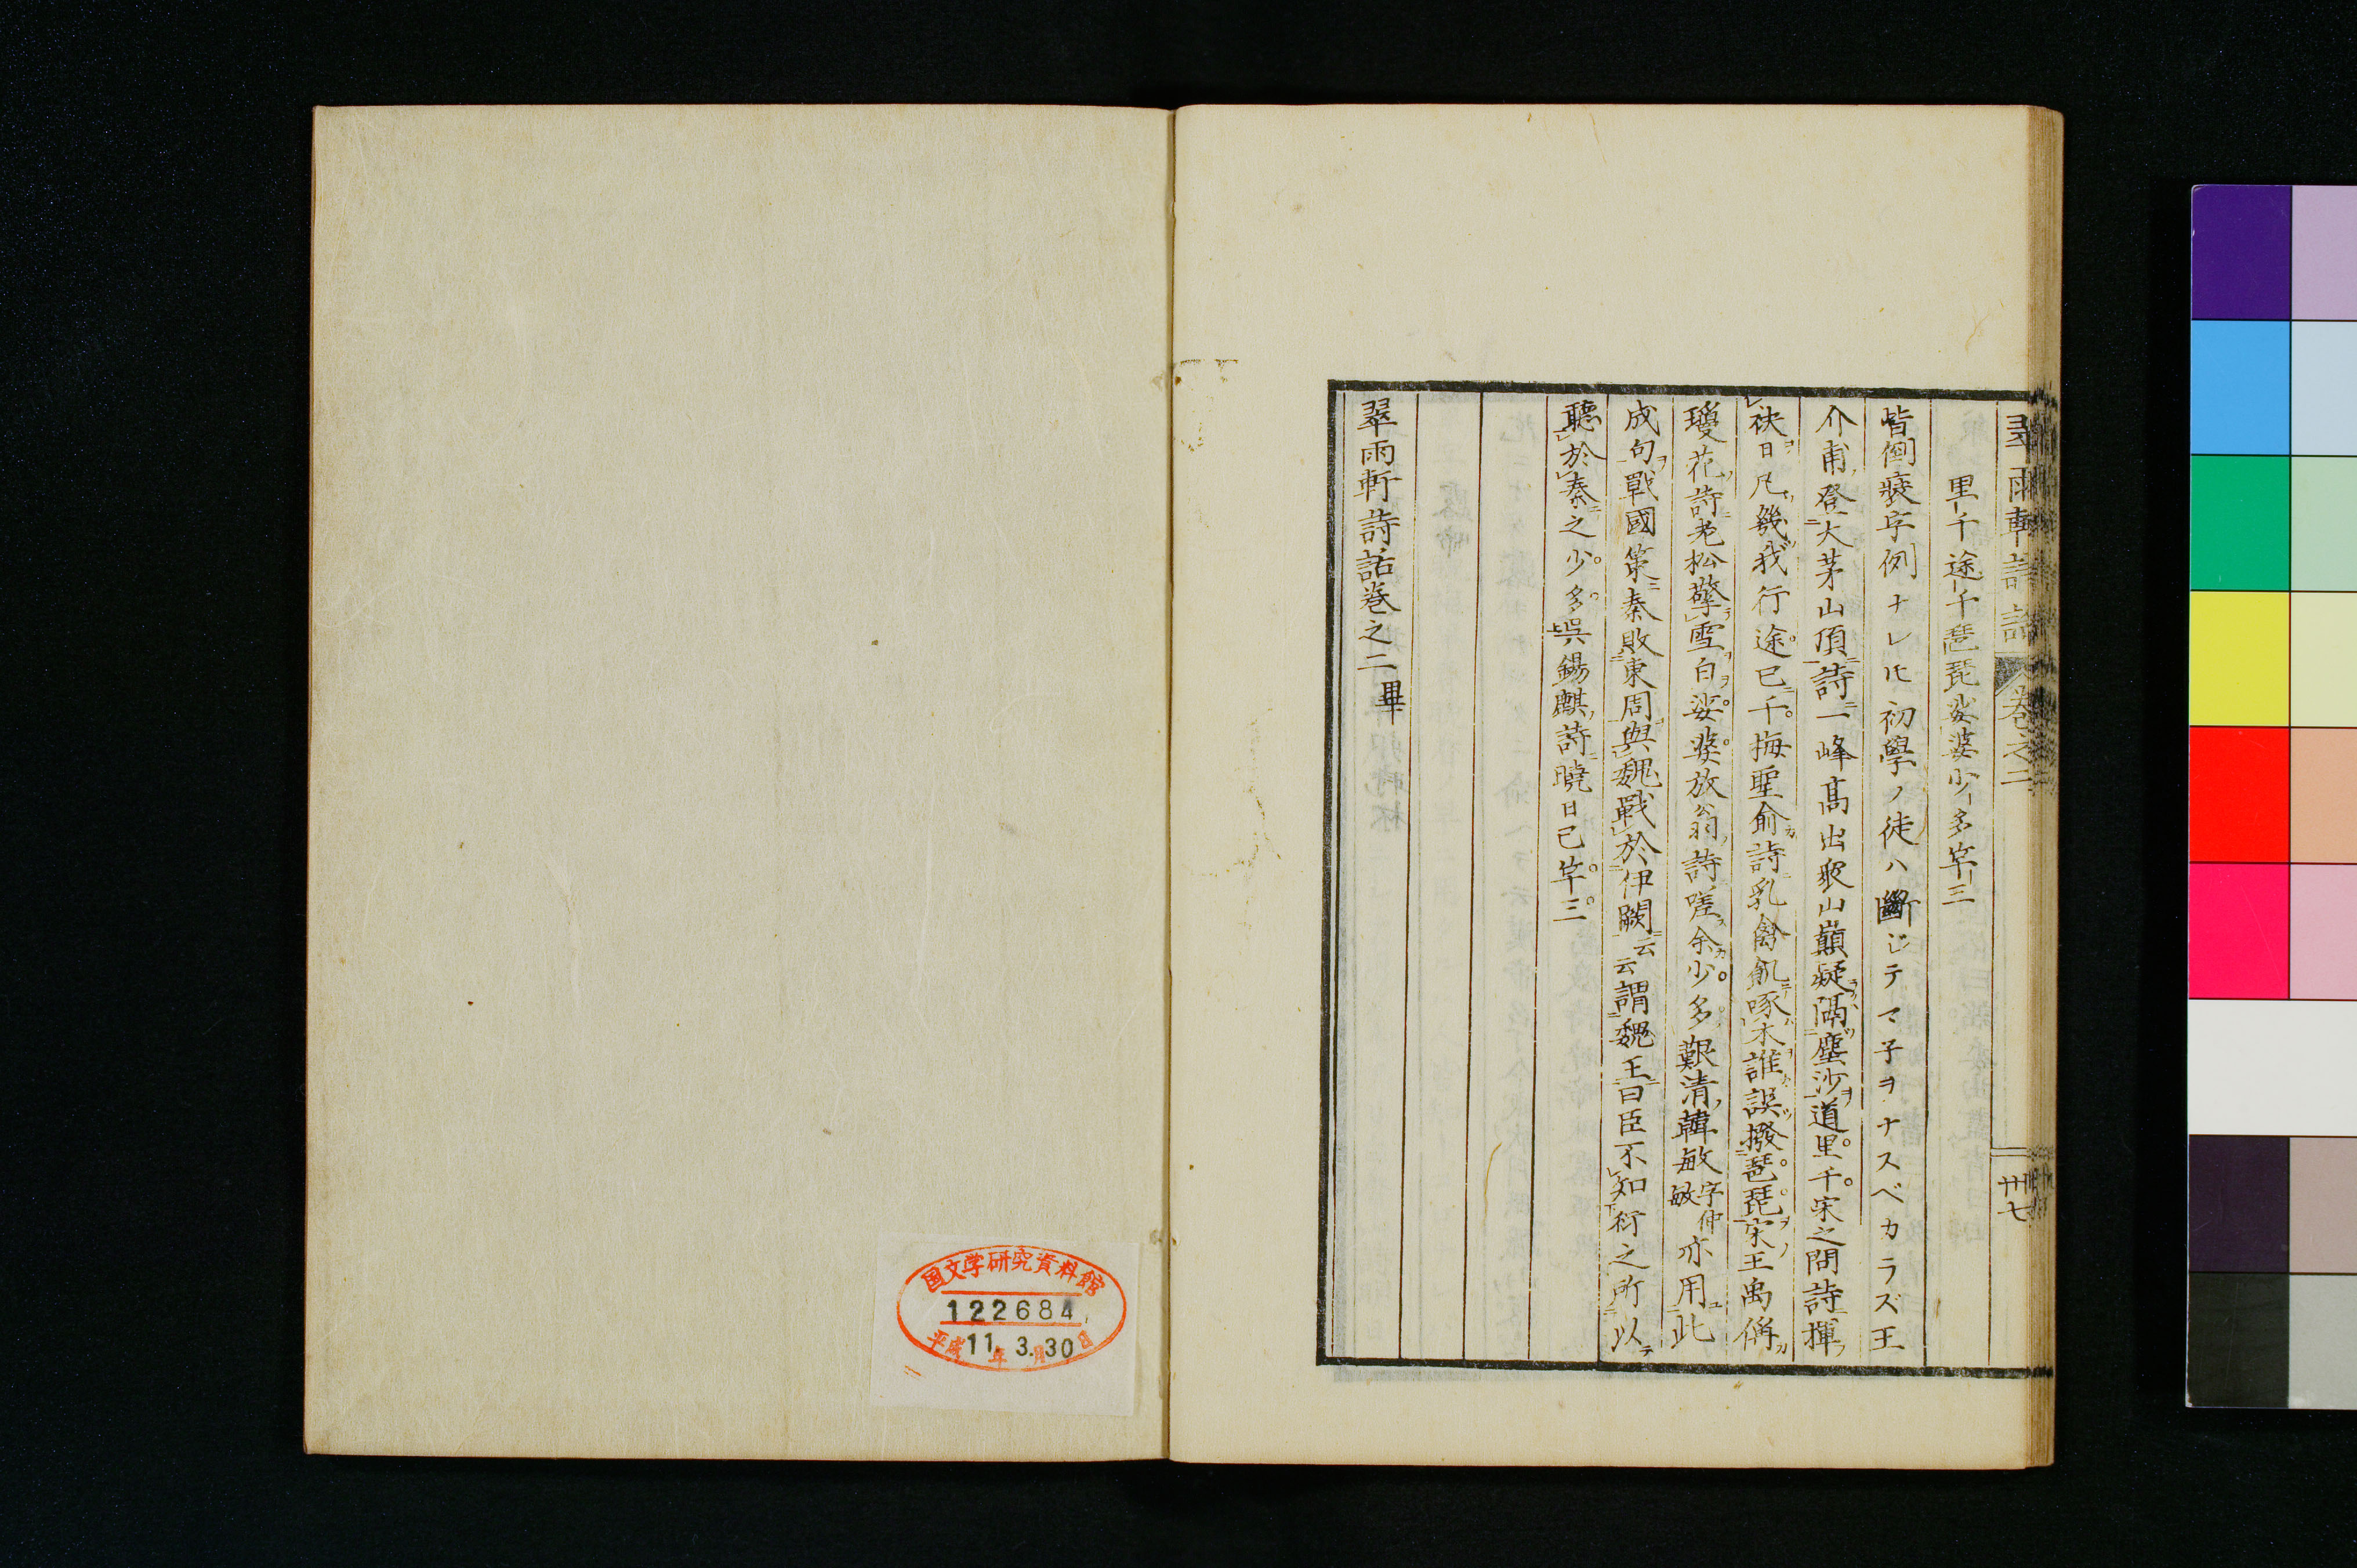 翠雨軒詩話 卷之二 卅七
里千 途千 琶琵 娑婆 少多 竿三
皆倒裝字例ナレ𪜈初學ノ徒ハ斷じテマ子ヲナスベカラズ王
介甫登大茅山頂詩一峰高出衆山巔疑隔塵沙道里千宋之問詩揮
袂日凡幾我行途已千梅聖俞詩乳禽飢啄木誰誤撥琶琵宋王禹偁
瓊花詩老松擎雪白娑婆放翁詩嗟余少多艱清韓敏字仲敏亦用此
成句戰國策秦敗東周與魏戰於伊闕云云謂魏王曰臣不知衍之所以
聽於秦之少多呉錫麒詩曉日已竿三
翠雨軒詩話卷之二畢
国文学研究資料館
122684
平成11年3月30日